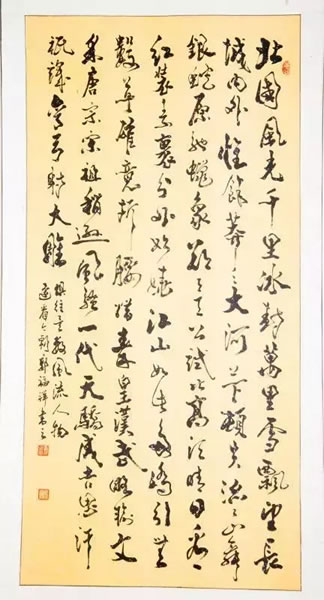 北國風光千里冰封萬里雪飄望長
城内外惟餘莽々大河上下頓失滔々山舞
銀蛇原馳蠟象欲與天公試比高須晴日看
紅裝素裹分外妖嬈江山如此多嬌引無
數英雄競折腰惜秦皇漢武略輸文
采唐宗宋祖稍遜風騷一代天驕成吉思汗
祇識彎弓射大雕
俱往矣數風流人物
還看今朝